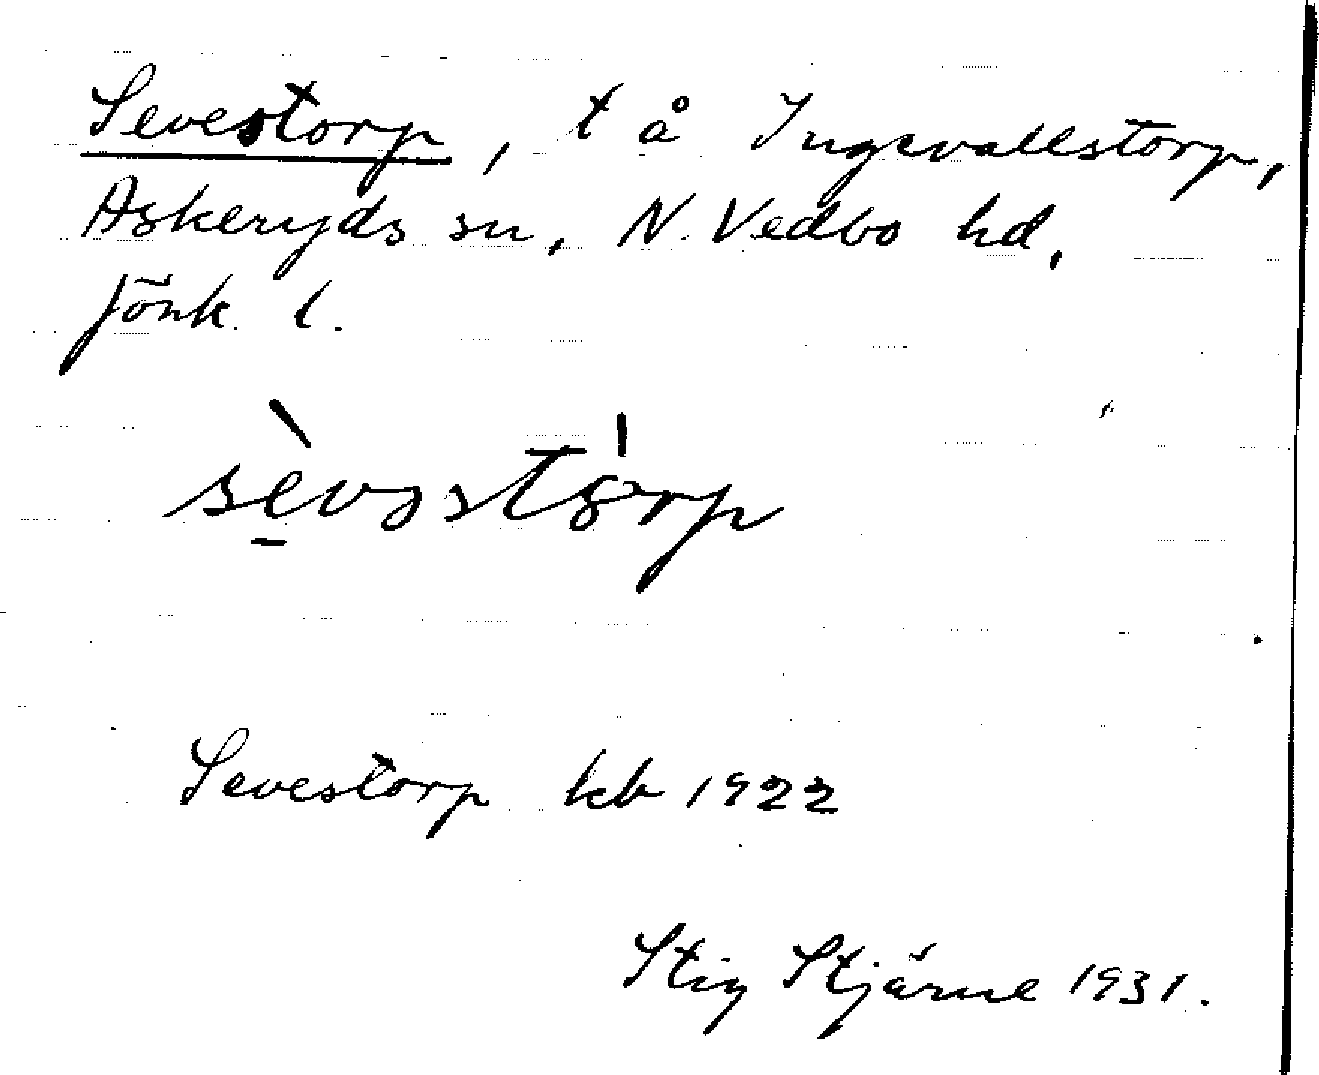 Sevestorp, t å Ingevallstorp,
Askeryds sn, N. Vedbo hd,
Jönk. l.
sèvəstórp
Sevestorp kb 1922
Stig Stjärne 1931.